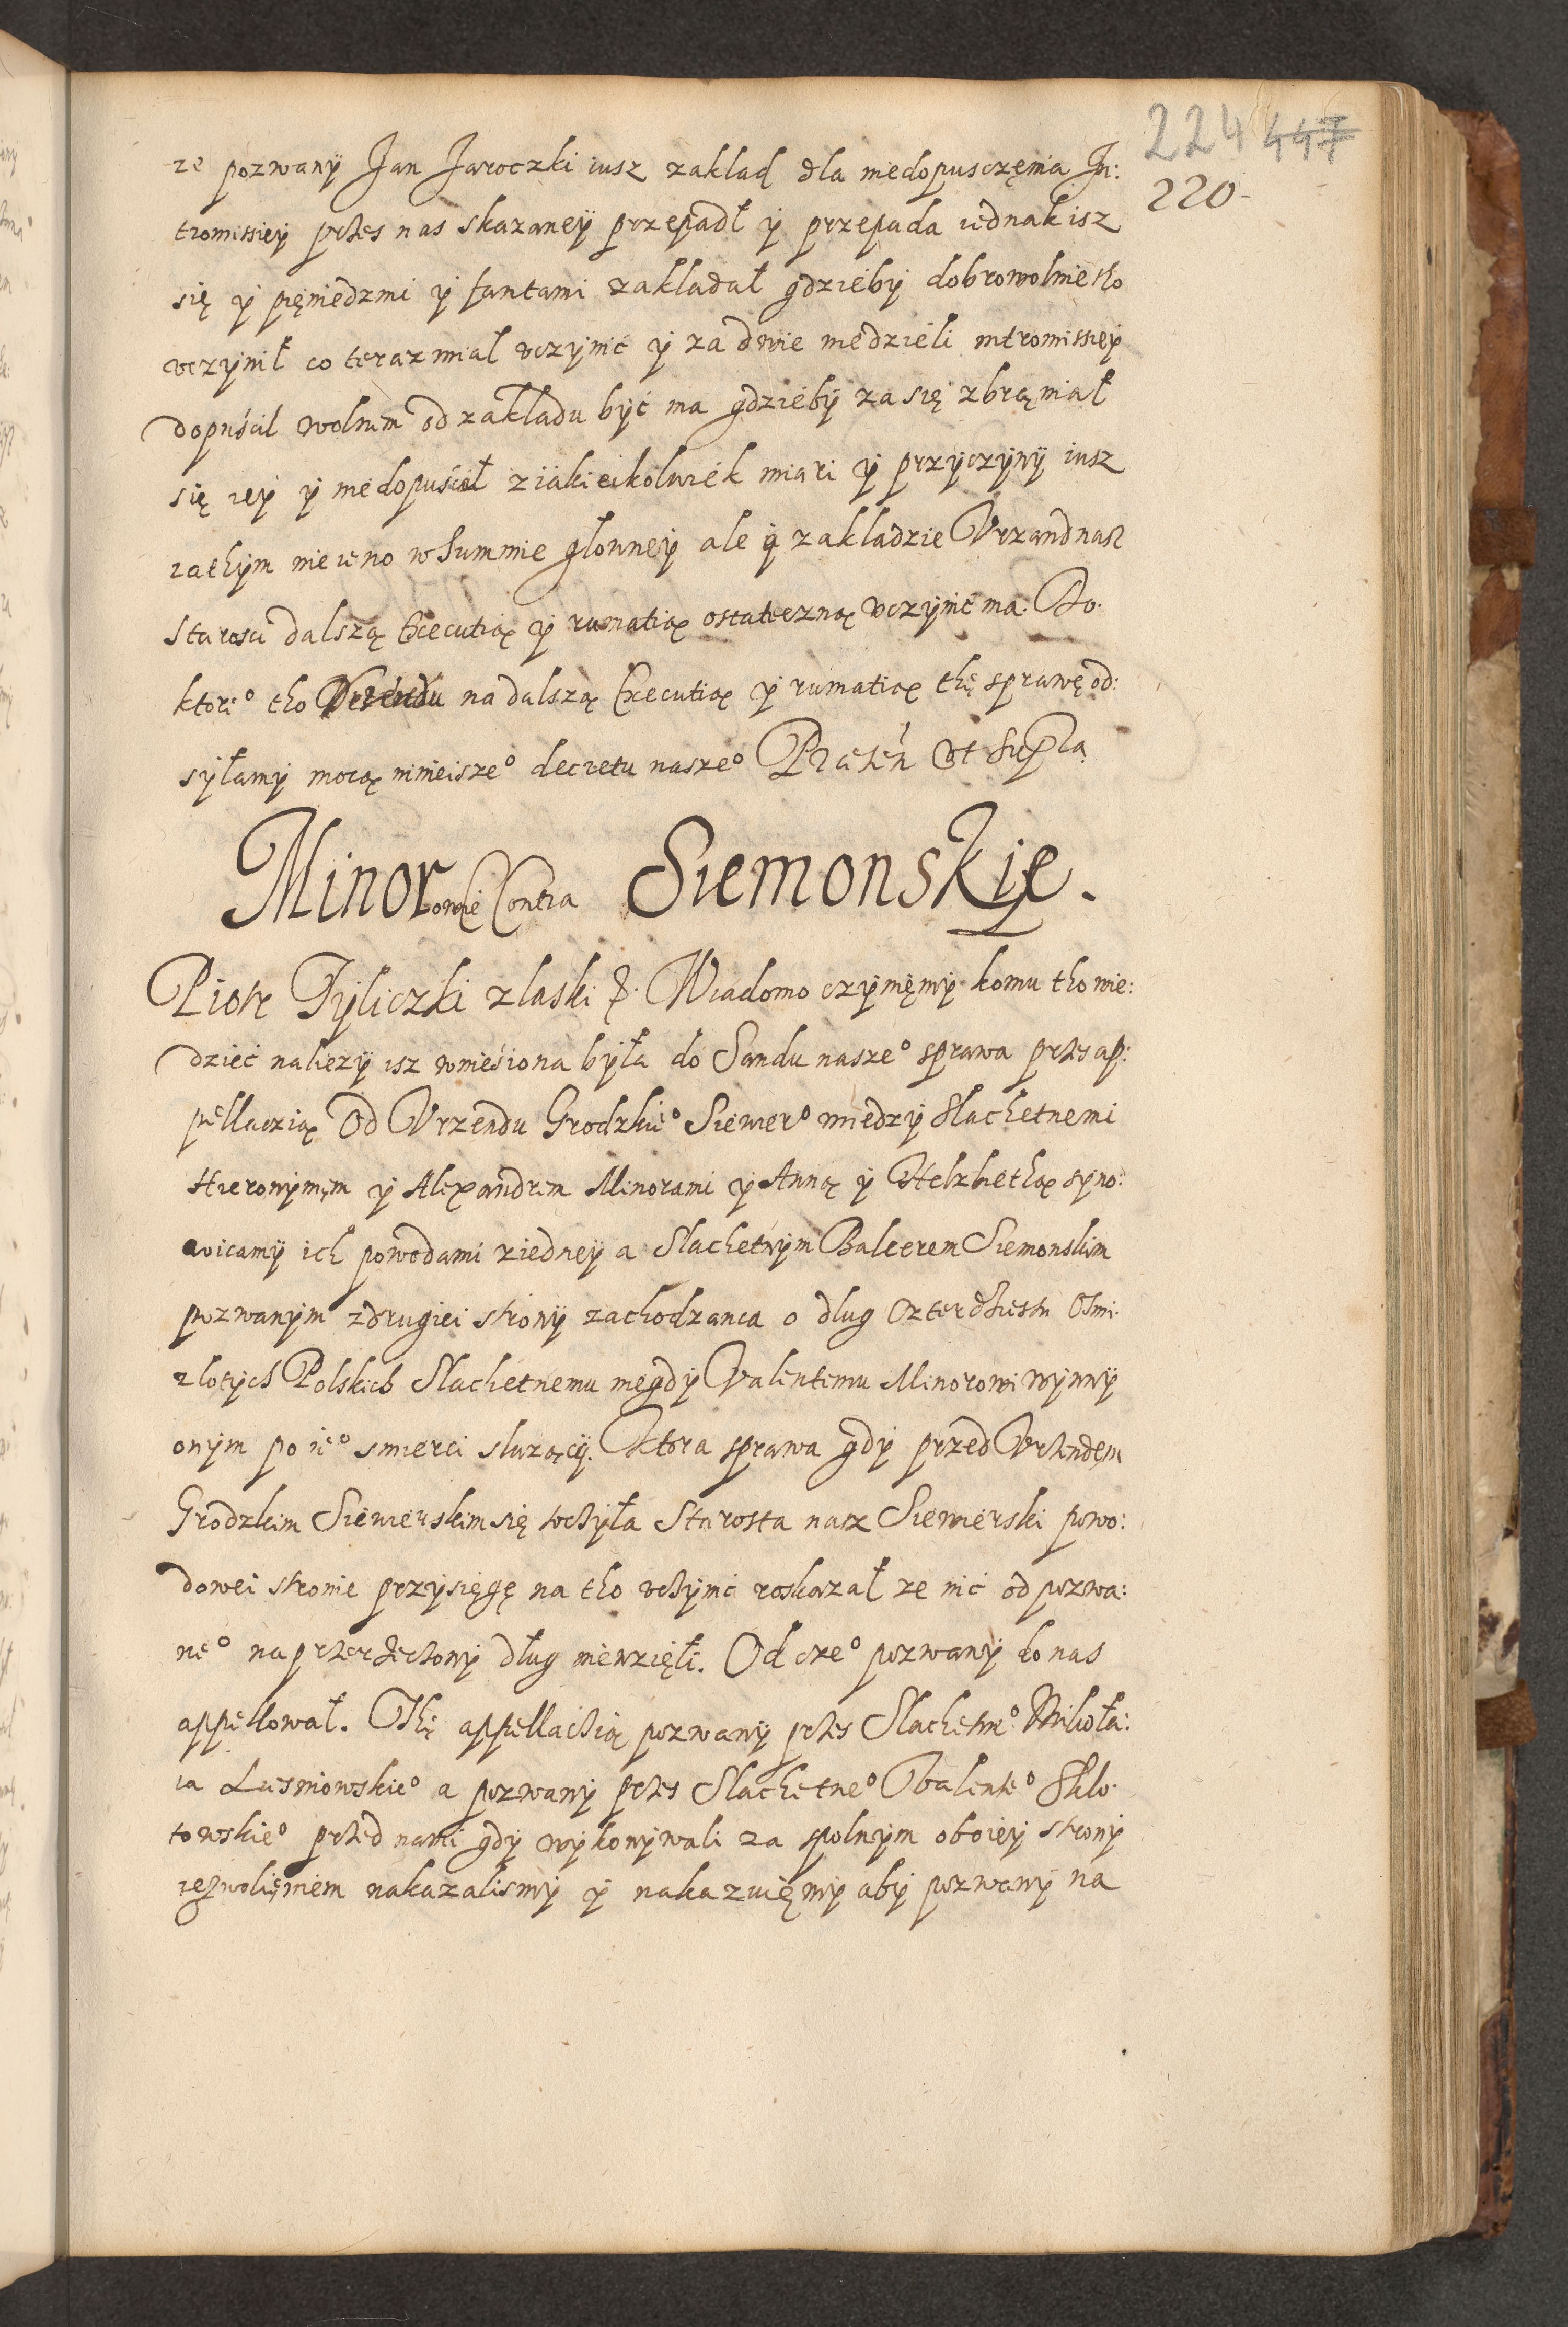 224 447
220-
ze pozwanÿ Jan Jaroczki iusz zaklad dla niedopusczęnia In:
tromissieÿ przes nas skazaneÿ przepadł ÿ przepada iednak isz
się ÿ pięniedzmi ÿ fantami zakladał gdziebÿ dobrowolnie tho
vczÿnił co teraz miał vczÿnić ÿ za dwie niedzieli intromissieÿ
dopuścił wolnim od zakladu bÿć ma gdziebÿ za się zbrąniał
się ieÿ ÿ niedopuścił z iakieikolwiek miari ÿ przÿczÿnÿ iusz
zathÿm nie ieno w Summie głowneÿ ale ÿ zakladzie Vrzand nasz
Starosci dalszą Executią ÿ rumatią ostateczną vczÿnić ma. Do
ktore° tho Vrzendu na dalszą Executią ÿ rumatią thę sprawę od:
sÿłamÿ mocą ninieisze° decretu nasze° Præsen vt supra
Minorowie Contra Siemonskię.
Piotr Tÿliczki z laski &. Wiadomo czÿnięmÿ komu tho wie:
dzieć nalieżÿ isz wnieśiona bÿła do Sandu nasze° sprawa przes ap:
pellaczią Od Vrzendu Grodzkie° Siewier° miedzÿ Slachetnemi
Hieronÿmęm ÿ Alexandrem Minorami ÿ Anną ÿ Helzbiethą sÿno:
wicamÿ ich powodami z iedneÿ a Slachetnÿm Balcerem Siemonskim
pozwanÿm z drugiei stronÿ zachodzanca o dlug czterdziestu Osmi
zlotÿch Polskich Slachetnemu niegdÿ Valentemu Minorowi wÿnnÿ
onÿm po ie° smierci sluzącÿ. Ktora sprawa gdÿ przed Vrzendęm
Grodzkim Siewierskim się toczÿła Starosta nasz Siewierski powo:
dowei stronie przÿsięgę na tho vczÿnić roskazał ze nic od pozwa:
ne° na przerzeczonÿ dług niewzięłi. Od cze° pozwanÿ do nas
appellował. Thę appellaczią pozwanÿ przes Slachetne° Mikoła:
ia Lusniowskie° a pozwanÿ przes Slachetne° Valente° Sklo
towskie° przed nami gdÿ wÿkonÿwali za spolnÿm oboieÿ stronÿ
zezwolięniem nakazalismÿ ÿ nakazuięmÿ abÿ pozwanÿ na